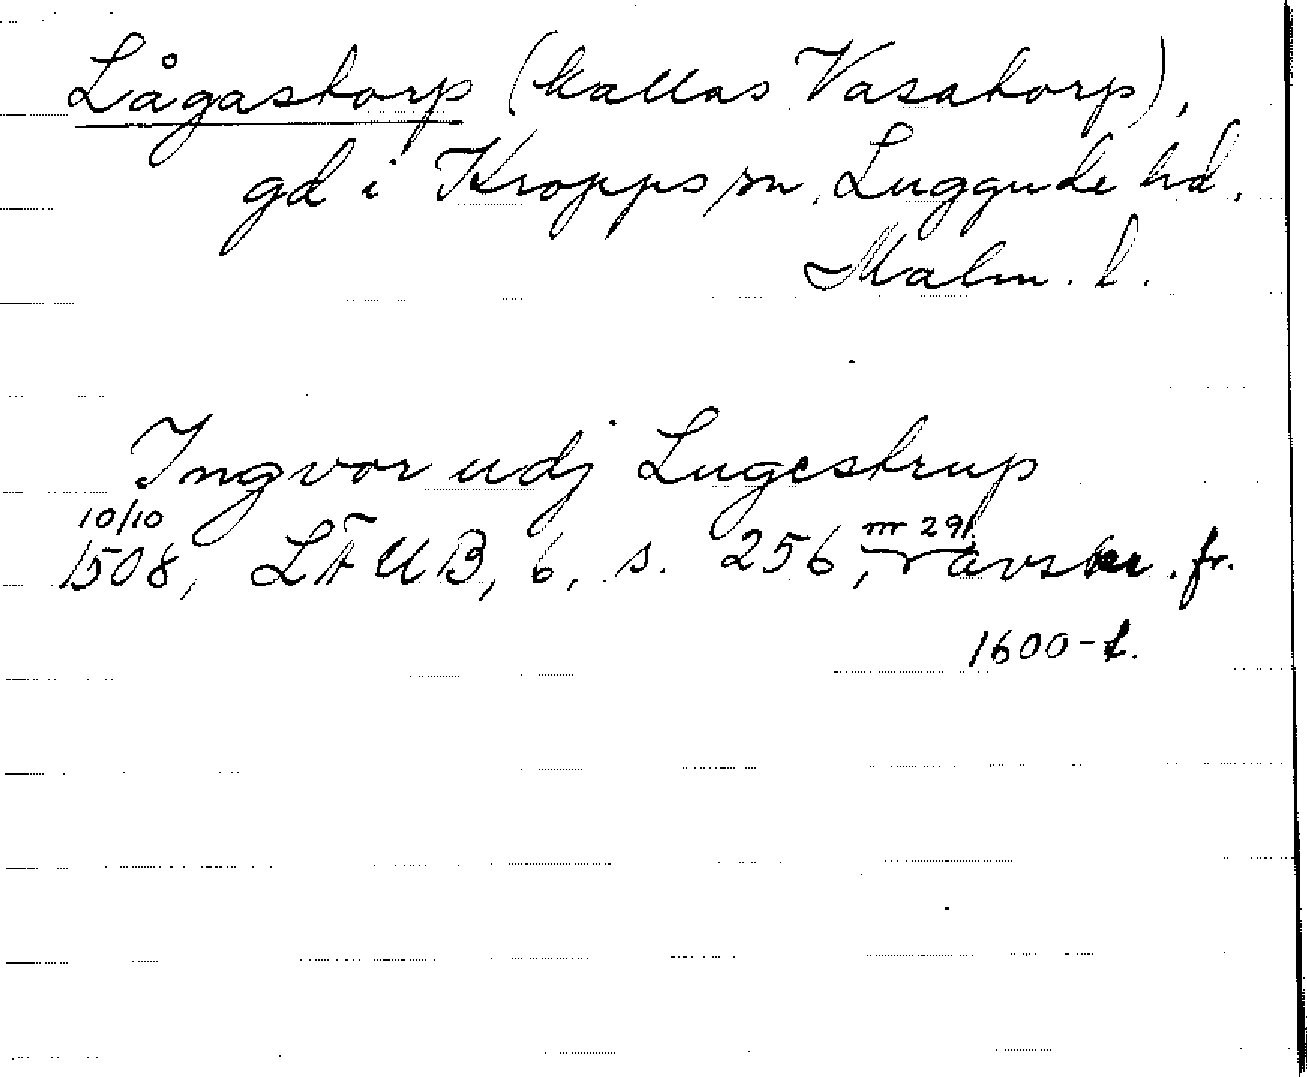 Lågastorp (kallas Vasatorp),
gd i Kropps sn, Luggude hd.
Malm. l.
Ingvor udj Lugestrup
10/10 nr 291
1508, LÄUB, 6, s. 256, avskr. fr.
1600-t.